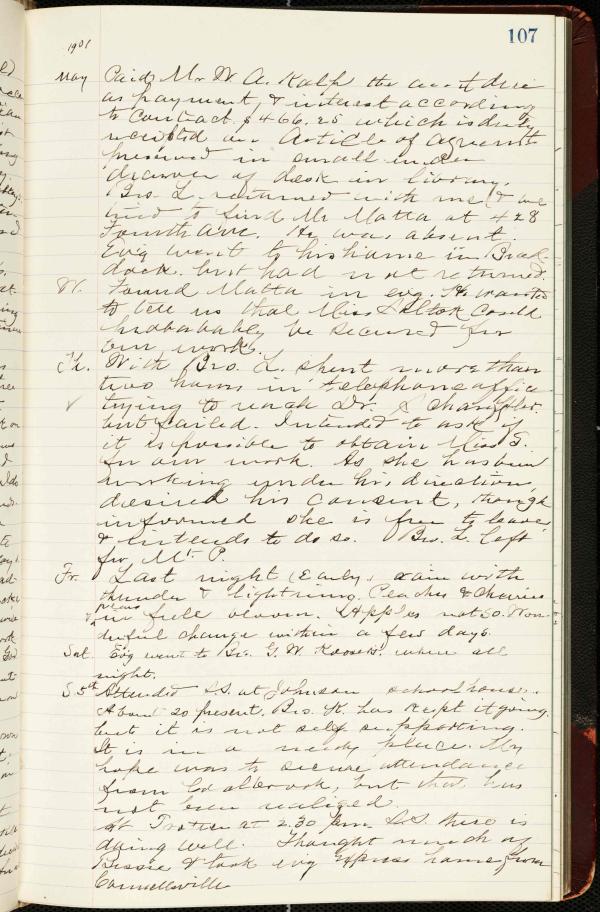 107
1901
May Paid Mr W. A. Kalp the am't due
as payment, & interest according
to contract. $466.25 which is duly
receipted on Article of agreement
preserved in small under
drawer of desk in library.
Bro. L. returned with me & we
tried to find Mr Matta at 428
Fourth Ave. He was absent.
Ev'g went to his home in Brad-
dock, but had not returned.
W. Found Matta in evg. He wanted
to tell us that Miss could
probabably be secured for
our work.
Th. With Bro. L. spent more than
two hours in telephone office
✓ trying to reach Dr. S
but failed. Intended to ask if
it is possible to obtain Miss S.
for our work. As she has been
working under his direction,
desired his consent, though
informed she is free to leave,
& intends to do so. Bro. L. left
for Mt. P.
Fr. Last night (Early) rain with
thunder & lightning. Peaches & cherries
& plums in full bloom. Apples not so. Won-
derful change within a few days.
Sat Ev'g went to Bro. G. W. where all
night.
S. 5th Attended S.S. at Johnson schoolhouse.
About 20 present. Bro. K. has kept it going,
but it is not self supporting.
It is in a needy place. My
hope was to secure attendance
from Coalbrook, but that has
not been realized.
At Trotter at 2.30 p.m. S.S. there is
doing well. Thought much of
Bessie & took evg express home from
Connellsville